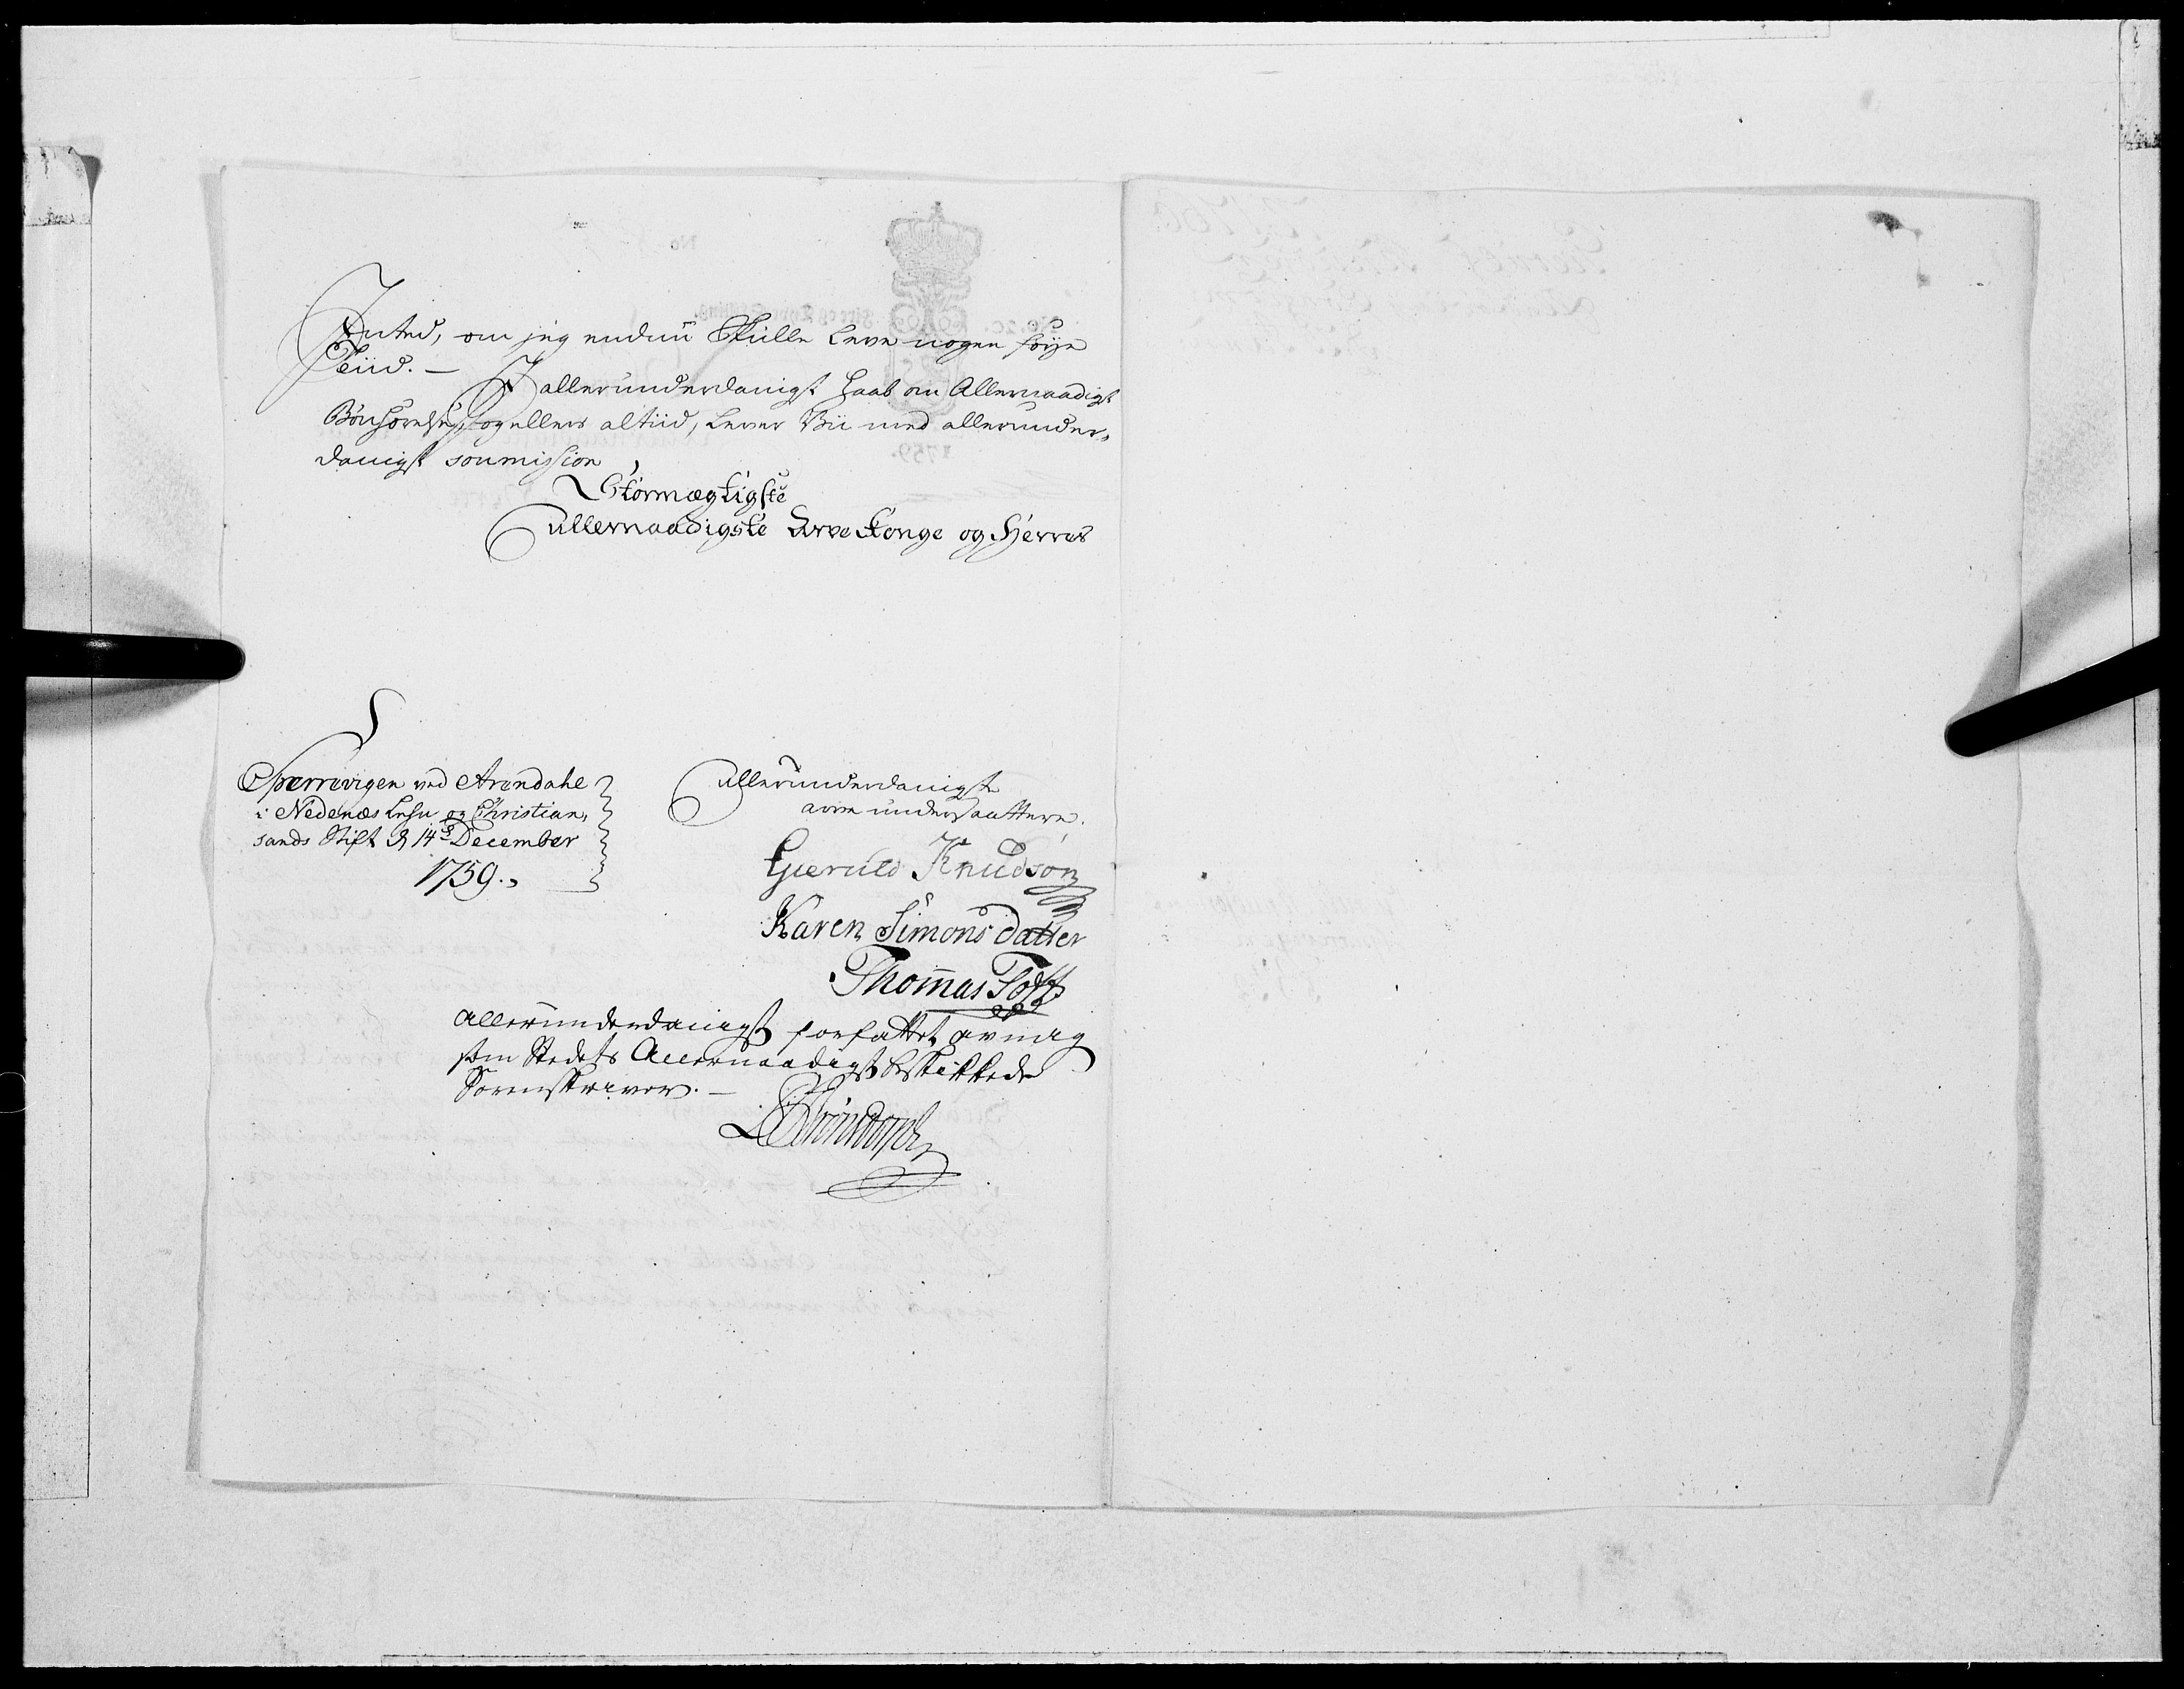 Inted, om jeg endnu Skulle Leve nogen føye
Tiid. —
I allerunderdanigst Haab om Allernaadigst
Bønhørelse, og ellers altiid, Lever Vii med allerunder-
danigst soumission
Stormægtigste
allernaadigste Arve Konge og Herres
Sperrevigen ved Arendahl
i Nedenæs Lehn og Christian,
sands Stift d 14de December
1759.
allerunderdanigste
arve undersaattere.
Gieruld Knudsøn
Karen Simons datter
Thomas Toft
allerunderdanigst forfattet av mig
som Stedets Allernaadigst beskikkede
Sorenskriver. —